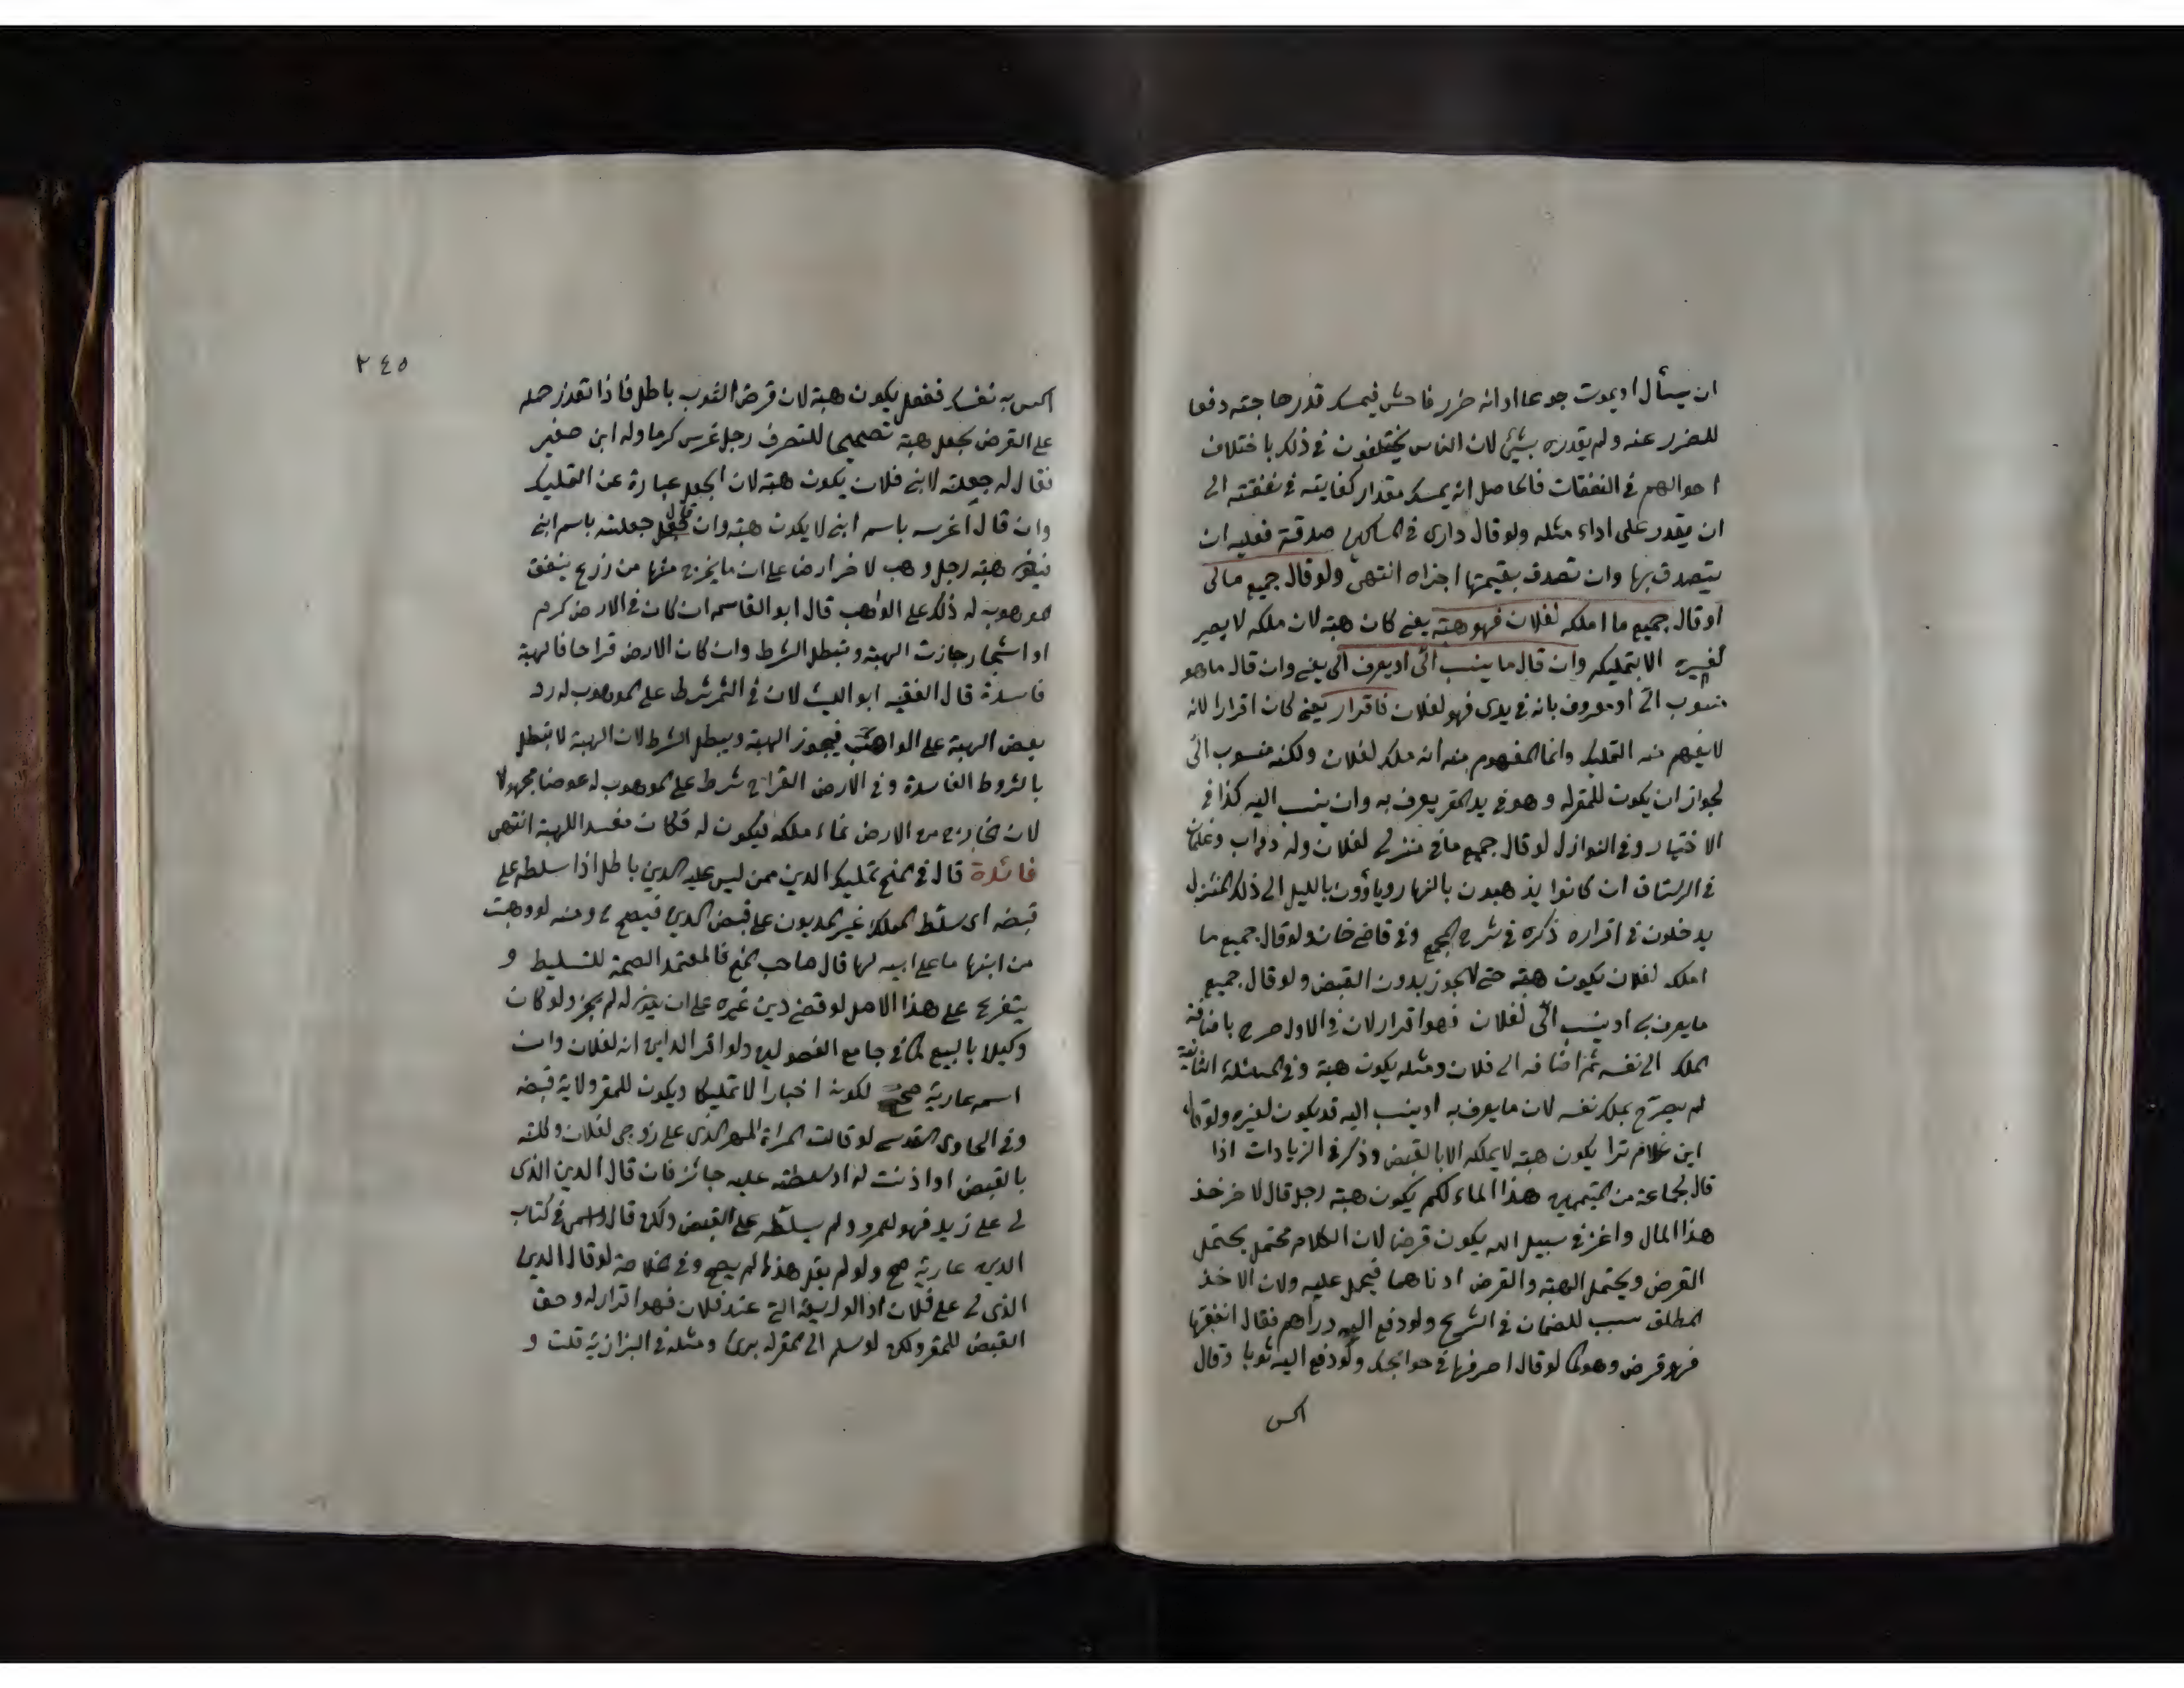 ان يسأل او يموت جوعا اوانه ضرر فاحش فيمسك قدر حاجته دفعا
للضرر عنه ولم يقدره بشيئ لان الناس يختلفون في ذلك باختلاف
احوالهم في النفقات فالحاصل انه يمسك مقدار كفايته في نفقته الى
ان يقدر على اداء مثله ولو قال دارى في المساكين صدقة فعليه ان
يتصدق بها وان تصدق بقيمتها اجزاه انتهى ولو قال جميع مالى
او قال جميع ما املكه لفلان فهو هبة يعنى كان هبة لان ملكه لا يصير
لغيره الا بتمليكه وان قال ما ينسب الىّ او يعرف الى يعنى وان قال ما هو
منسوب الىّ او معروف بانه في يدى فهو لفلان فاقرار يعنى كان اقرارا لانه
لا يفهم منه التمليك وانما المفهوم منه انه ملك لفلان ولكنه منسوب الىّ
لجواز ان يكون للمقر له وهو في يد المقر يعرف به وان ينسب اليه كذا في
الاختيار وفي النوازل لو قال جميع ما في منزلى لفلان وله دواب وغلمان
في الرستاق ان كانوا يذهبون بالنهار وياؤون بالليل الى ذلك المنزل
يدخلون في اقراره ذكره في شرح المجمع وفي قاضى خان ولو قال جميع ما
املكه لفلان يكون هبة حتى لا يجوز بدون القبض ولو قال جميع
ما يعرف بى او ينسب الىّ لفلان فهو اقرار لان في الاول صرح باضافة
الملك الى نفسه ثم اضافه الى فلان ومثله يكون هبة وفي المسئلة الثانية
لم يصرّح بملك نفسه لان ما يعرف به او ينسب اليه قد يكون لغيره ولو قال
اين غلام ترا يكون هبة لا يملكه الا بالقبض وذكر في الزيادات اذا
قال لجماعة من المتيممين هذا الماء لكم يكون هبة رجل قال لاخر خذ
هذا المال واغز في سبيل الله يكون قرضا لان الكلام محتمل يحتمل
القرض ويحتمل الهبة والقرض ادناهما فيحمل عليه ولان الاخذ
المطلق سبب للضمان في الشرع ولو دفع اليه دراهم فقال انفقها
فهو قرض وهو كما لو قال اصرفها في حوائجك ولو دفع اليه ثوبا وقال
اكس
٢٤٥
اكس به نفسك ففعل يكون هبة لان قرض الثوب باطل فاذا تعذر حمله
على القرض يجعل هبة تصحيحا للتصرف رجل غرس كرما وله ابن صغير
فقال له جعلته لابنى فلان يكون هبة لان الجعل عبارة عن التمليك
وان قال اغرسه باسم ابنى لا يكون هبة وان قال جعلته باسم ابنى
هبة رجل وهب لاخر ارضا على ان ما يخرج منها من زرع ينفق
الموهوب له ذلك على الواهب قال ابو القاسم ان كان في الارض كرم
او اشجار جازت الهبة وتبطل الشرط وان كان الارض قراحا فالهبة
فاسدة قال الفقيه ابو الليث لان في الثمر شرط على الموهوب له رد
بعض الهبة على الواهب فيجوز الهبة ويبطل الشرط لان الهبة لا تبطل
بالشروط الفاسدة وفي الارض القراح شرط على الموهوب له عوضا مجهولا
لان الخارج من الارض نماء ملكه ليكون له فكان مفسدا للهبة انتهى
فائدة قال في المنح تمليك الدين ممن ليس عليه الدين باطل اذا سلطه على
قبضه اى سلّط المملك غير المديون على قبض الدين فيصح ومنه لو وهبت
من ابنها ما على ابيه لها قال صاحب المنح فالمعتمد الصحة للتسليط و
يتفرع على هذا الاصل لو قضى دين غيره على ان يكون له لم يجز ولو كان
وكيلا بالبيع كما في جامع الفصولين ولو اقر الداين انه لفلان وان
اسمه عارية صح لكونه اخبارا لا تمليكا ويكون للمقر ولاية قبضه
وفي الحاوى القدسى لو قالت المراة المهر الذى على زوجى لفلان وكلته
بالقبض او اذنت له او سلطته عليه جائز فان قال الدين الذى
لى على زيد فهو لعمرو ولم يسلّطه على القبض ولكن قال واسمى في كتاب
الدين عارية صح ولو لم يقل هذا لم يصح وفي الخلاصة لو قال الدين
الذى لى على فلان او الوديعة التى عند فلان فهو اقرار له وحق
القبض للمقر ولكن لو سلم الى المقر له برئ ومثله في البزازية قلت و